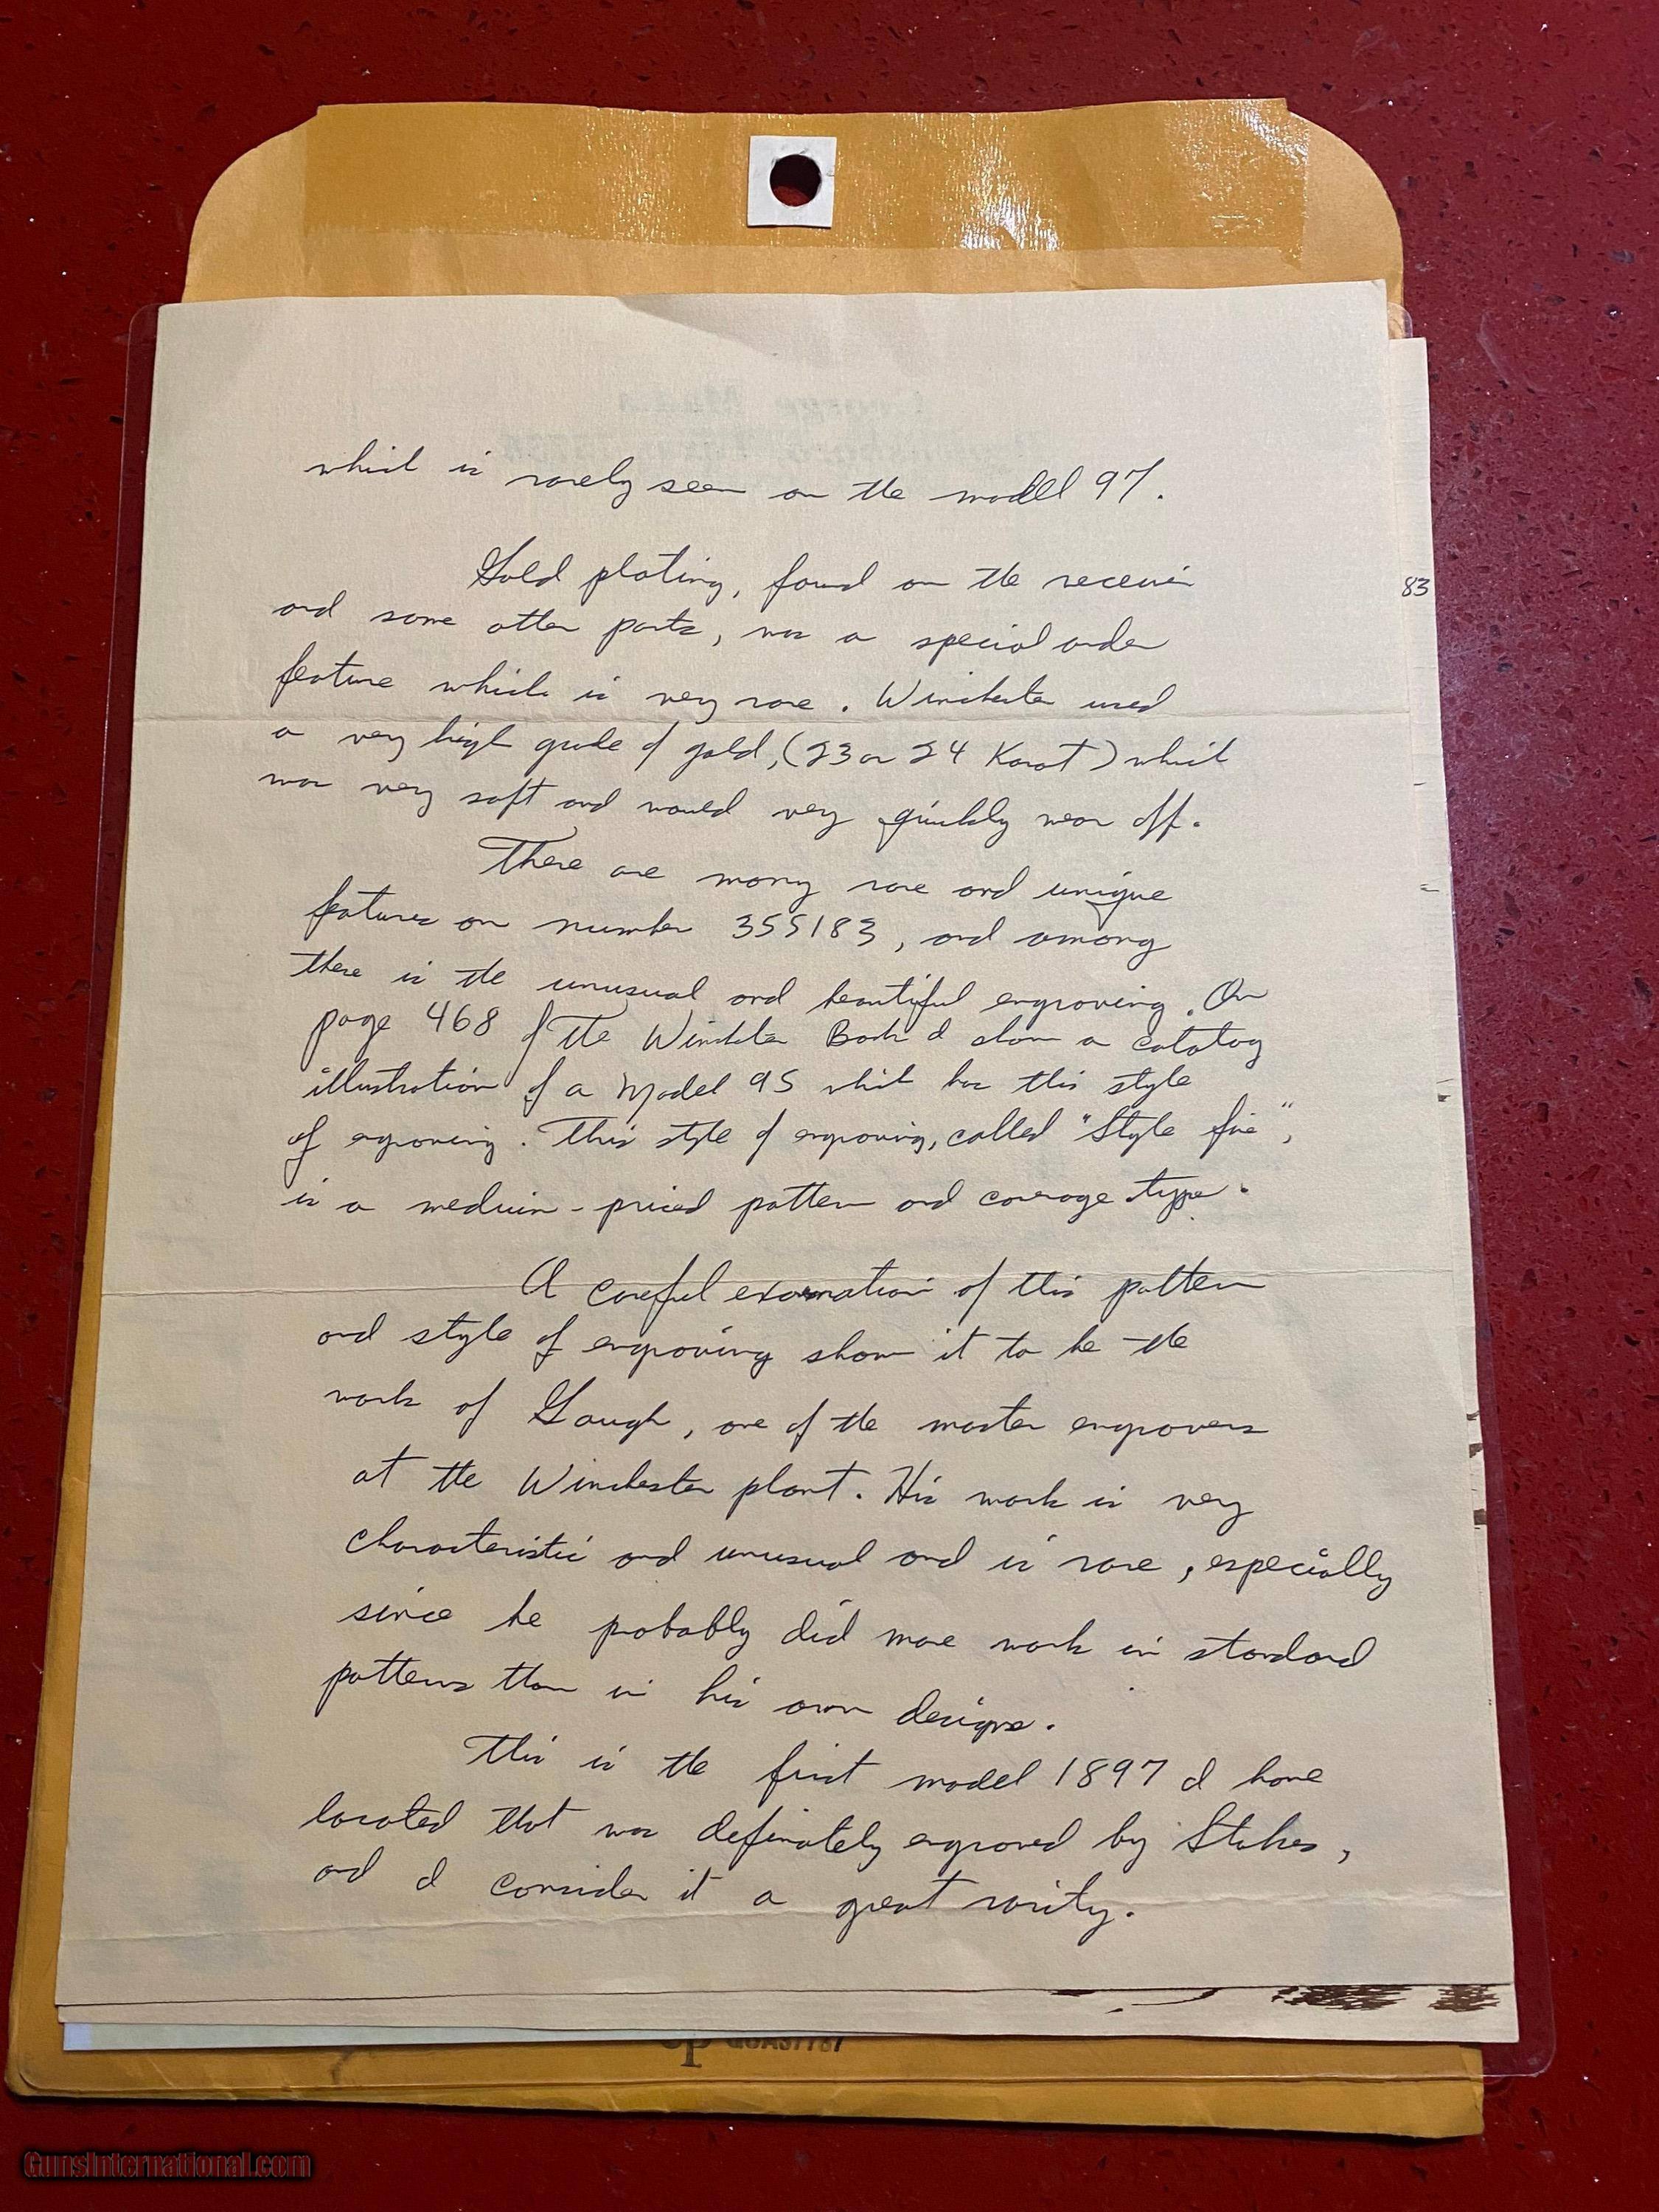 which is rarely seen on the model 97.
Gold plating, found on the receiver
and some other parts, was a special order
feature which is very rare. Winchester used
a very high grade of gold, (23 or 24 Karat) which
was very soft and would very quickly wear off.
There are many rare and unique
features on number 355183, and among
these is the unusual and beautiful engraving. On
page 468 of The Winchester Book I show a catalog
illustration of a Model 95 which has this style
of engraving. This style of engraving, called "Style five",
is a medium-priced pattern and coverage type.
A careful examation of this pattern
and style of engraving show it to be the
work of Gough, one of the master engravers
at the Winchester plant. His work is very
characteristic and unusual and is rare, especially
since he probably did more work in standard
patterns than in his own designs.
This is the first model 1897 I have
located that was definately engraved by Stokes,
and I consider it a great rarity.
83
GunsInternational.com